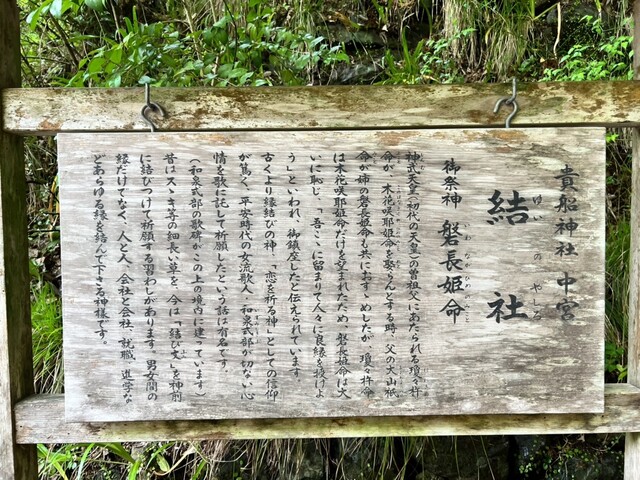 貴船神社 中宮
結社
けいのやしろ
御祭神 磐長姫命
いわながひめのみこと
神武天皇(初代の天皇)の曽祖父にあたられる瓊々杵
命が、木花咲耶姫命を娶らんとする時、父の大山祇
命が姉の磐長姫命も共におすゝめしたが、瓊々杵命
は木花咲耶姫命だけを望まれたため、磐長姫命は大
いに恥じ、「吾こゝに留まりて人々に良縁を授けよ
う」といわれ、御鎮座したと伝えられています。
古くより縁結びの神、「恋を祈る神」としての信仰
が篤く、平安時代の女流歌人・和泉式部が切ない心
情を歌に託して祈願したという話は有名です。
(和泉式部の歌碑がこの上の境内に建っています)
昔はスヽき等の細長い草を、今は「結び文」を神前
に結びつけて祈願する習わしがあります。男女間の
縁だけでなく、人と人、会社と会社、就職、進学な
どあらゆる縁を結んで下さる神様です。